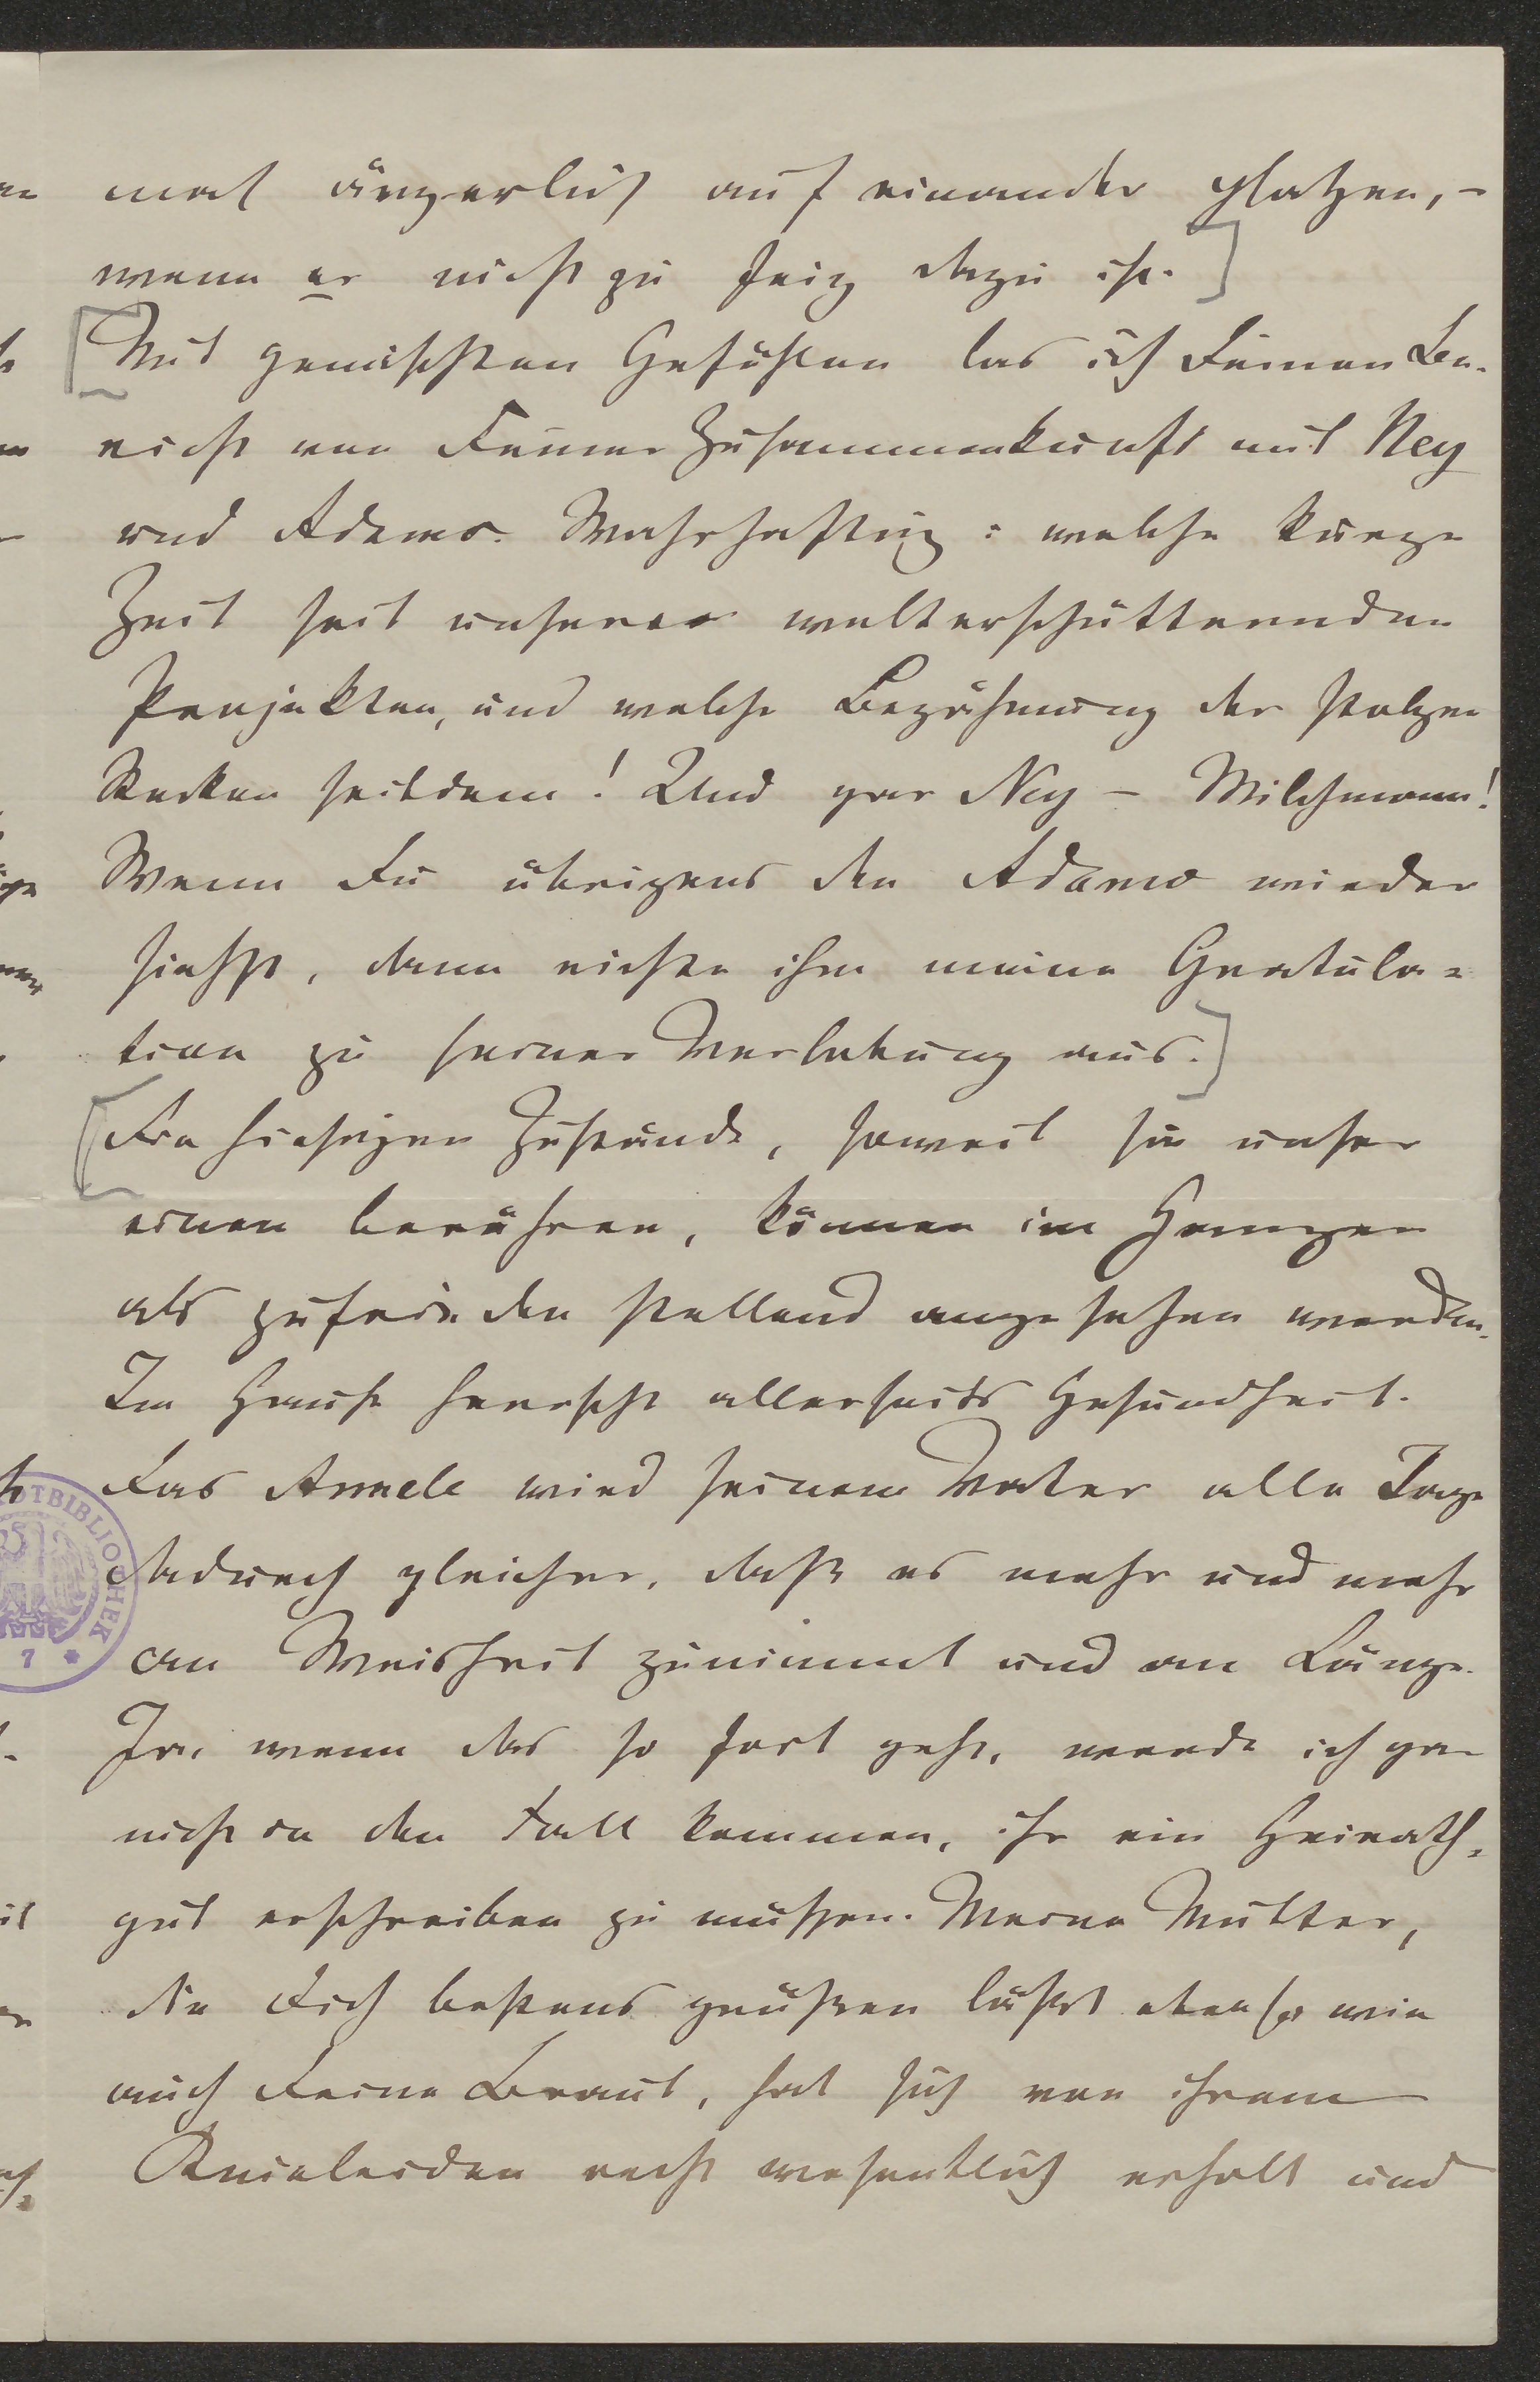 mal ärgerlich auf einander platzen, –
wenn er nicht zu feig dazu ist.]
[Mit gemischten Gefühlen las ich Deinen Be-
richt von Deiner Zusammenkunft mit Ney
und Adamo. Wahrhaftig: welche kurze
Zeit seit unseren welterschütternden
Projekten, und welche Bezähmung der stolzen
Recken seitdem! Und gar Ney – Milchmann!
Wenn Du übrigens den Adamo wieder
siehst, dann richte ihm meine Gratula-
tion zu seiner Verlobung aus.]
[Die hiesigen Zustände, soweit sie unser
einen berühren, können im Ganzen
als zufrieden stellend angesehen werden.
Im Hause herrscht allerseits Gesundheit.
Das Annele wird seinem Vater alle Tage
dadurch gleicher, daß es mehr und mehr
an Weisheit zunimmt und an Länge.
Ja, wenn das so fort geht, werde ich gar
nicht in den Fall kommen, ihr ein Heirath-
gut erschreiben zu müssen. Meine Mutter,
die Dich bestens grüßen läßt ebenso wie
auch Deine Braut, hat sich von ihrem
Knieleiden recht wesentlich erholt und
STADTBIBLIOTHEK
7 *